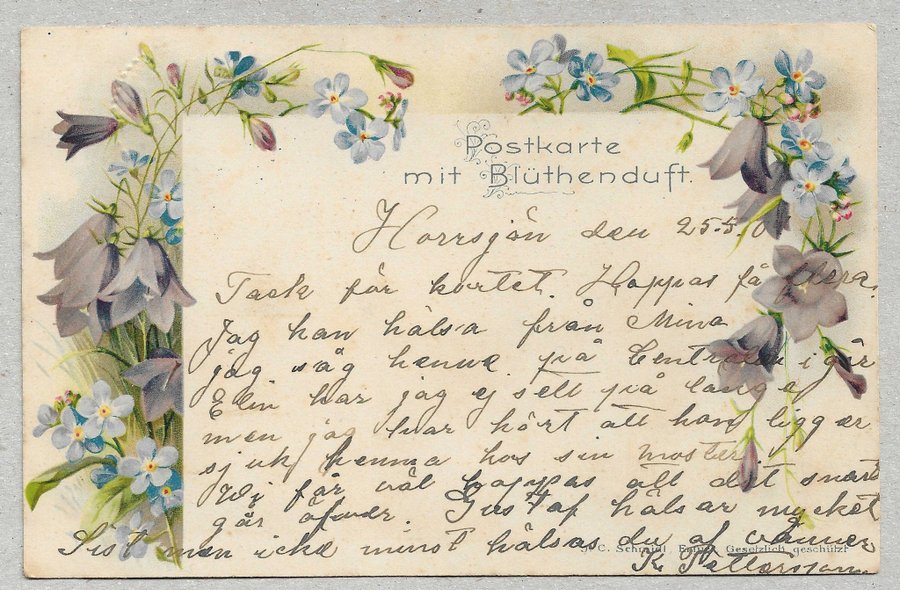 Postkarte
mit Blüthenduft.
Horrsjön den 25.5.
Tack för kortet. Hoppas få flera.
Jag kan hälsa från Mina
jag såg henne på Centralen i går
Elin har jag ej sett på länge
men jag har hört att hon ligger
sjuk hemma hos sin moster
Wi får väl hoppas att det snart
går öfver. Gustaf hälsar mycket
Sist men icke minst hälsas du af vännen
J. C. Schmidt, Erfurt. Gesetzlich geschützt
K. Pettersson